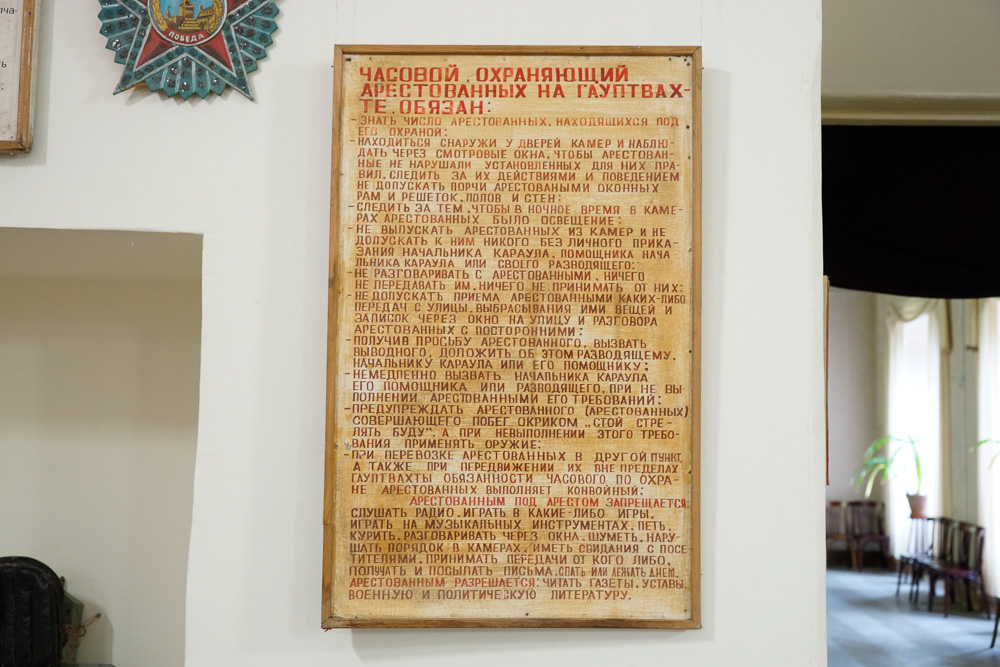 ПОБЕДА
ЧАСОВОЙ, ОХРАНЯЮЩИЙ
АРЕСТОВАННЫХ НА ГАУПТВАХ-
ТЕ, ОБЯЗАН:
-ЗНАТЬ ЧИСЛО АРЕСТОВАННЫХ, НАХОДЯЩИХСЯ ПОД
ЕГО ОХРАНОЙ;
-НАХОДИТЬСЯ СНАРУЖИ У ДВЕРЕЙ КАМЕР И НАБЛЮ-
ДАТЬ ЧЕРЕЗ СМОТРОВЫЕ ОКНА, ЧТОБЫ АРЕСТОВАН-
НЫЕ НЕ НАРУШАЛИ УСТАНОВЛЕННЫХ ДЛЯ НИХ ПРА-
ВИЛ, СЛЕДИТЬ ЗА ИХ ДЕЙСТВИЯМИ И ПОВЕДЕНИЕМ
НЕ ДОПУСКАТЬ ПОРЧИ АРЕСТОВАНЫМИ ОКОННЫХ
РАМ И РЕШЕТОК, ПОЛОВ И СТЕН;
-СЛЕДИТЬ ЗА ТЕМ, ЧТОБЫ В НОЧНОЕ ВРЕМЯ В КАМЕ-
РАХ АРЕСТОВАННЫХ БЫЛО ОСВЕЩЕНИЕ;
-НЕ ВЫПУСКАТЬ АРЕСТОВАННЫХ ИЗ КАМЕР И НЕ
ДОПУСКАТЬ К НИМ НИКОГО БЕЗ ЛИЧНОГО ПРИКА-
ЗАНИЯ НАЧАЛЬНИКА КАРАУЛА, ПОМОЩНИКА НАЧА
ЛЬНИКА КАРАУЛА ИЛИ СВОЕГО РАЗВОДЯЩЕГО;
-НЕ РАЗГОВАРИВАТЬ С АРЕСТОВАННЫМИ, НИЧЕГО
НЕ ПЕРЕДАВАТЬ ИМ, НИЧЕГО НЕ ПРИНИМАТЬ ОТ НИХ;
-НЕ ДОПУСКАТЬ ПРИЕМА АРЕСТОВАННЫМИ КАКИХ-ЛИБО
ПЕРЕДАЧ С УЛИЦЫ, ВЫБРАСЫВАНИЯ ИМИ ВЕЩЕЙ И
ЗАПИСОК ЧЕРЕЗ ОКНО НА УЛИЦУ И РАЗГОВОРА
АРЕСТОВАННЫХ С ПОСТОРОННИМИ;
-ПОЛУЧИВ ПРОСЬБУ АРЕСТОВАННОГО, ВЫЗВАТЬ
ВЫВОДНОГО, ДОЛОЖИТЬ ОБ ЭТОМ РАЗВОДЯЩЕМУ,
НАЧАЛЬНИКУ КАРАУЛА ИЛИ ЕГО ПОМОЩНИКУ;
-НЕМЕДЛЕННО ВЫЗВАТЬ НАЧАЛЬНИКА КАРАУЛА
ЕГО ПОМОЩНИКА ИЛИ РАЗВОДЯЩЕГО, ПРИ НЕ ВЫ-
ПОЛНЕНИИ АРЕСТОВАННЫМИ ЕГО ТРЕБОВАНИЙ;
-ПРЕДУПРЕЖДАТЬ АРЕСТОВАННОГО (АРЕСТОВАННЫХ)
СОВЕРШАЮЩЕГО ПОБЕГ ОКРИКОМ „СТОЙ СТРЕ-
ЛЯТЬ БУДУ", А ПРИ НЕВЫПОЛНЕНИИ ЭТОГО ТРЕБО-
ВАНИЯ ПРИМЕНЯТЬ ОРУЖИЕ;
-ПРИ ПЕРЕВОЗКЕ АРЕСТОВАННЫХ В ДРУГОЙ ПУНКТ,
А ТАКЖЕ ПРИ ПЕРЕДВИЖЕНИИ ИХ ВНЕ ПРЕДЕЛАХ
ГАУПТВАХТЫ ОБЯЗАННОСТИ ЧАСОВОГО ПО ОХРА-
НЕ АРЕСТОВАННЫХ ВЫПОЛНЯЕТ КОНВОЙНЫЙ;
АРЕСТОВАННЫМ ПОД АРЕСТОМ ЗАПРЕЩАЕТСЯ:
СЛУШАТЬ РАДИО, ИГРАТЬ В КАКИЕ-ЛИБО ИГРЫ,
ИГРАТЬ НА МУЗЫКАЛЬНЫХ ИНСТРУМЕНТАХ, ПЕТЬ,
КУРИТЬ, РАЗГОВАРИВАТЬ ЧЕРЕЗ ОКНА, ШУМЕТЬ, НАРУ-
ШАТЬ ПОРЯДОК В КАМЕРАХ, ИМЕТЬ СВИДАНИЯ С ПОСЕ-
ТИТЕЛЯМИ, ПРИНИМАТЬ ПЕРЕДАЧИ ОТ КОГО ЛИБО,
ПОЛУЧАТЬ И ПОСЫЛАТЬ ПИСЬМА, СПАТЬ ИЛИ ЛЕЖАТЬ ДНЕМ.
АРЕСТОВАННЫМ РАЗРЕШАЕТСЯ: ЧИТАТЬ ГАЗЕТЫ, УСТАВЫ,
ВОЕННУЮ И ПОЛИТИЧЕСКУЮ ЛИТЕРАТУРУ.